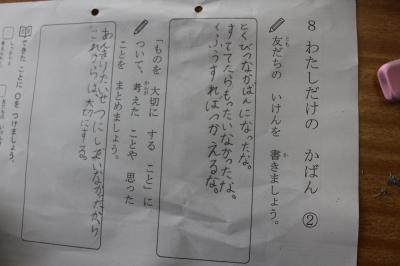 8 わたしだけの かばん ②
友だちの いけんを 書きましょう。
とくべつなかばんになったな。
すててたらもったいなかったな。
くふうすればつかえるな。
「ものを 大切に する こと」に
ついて、考えた ことや 思った
ことを まとめましょう。
あんまりたいせつにしていなかったから
これからは大切にする。
できた ことに ○を つけましょう。